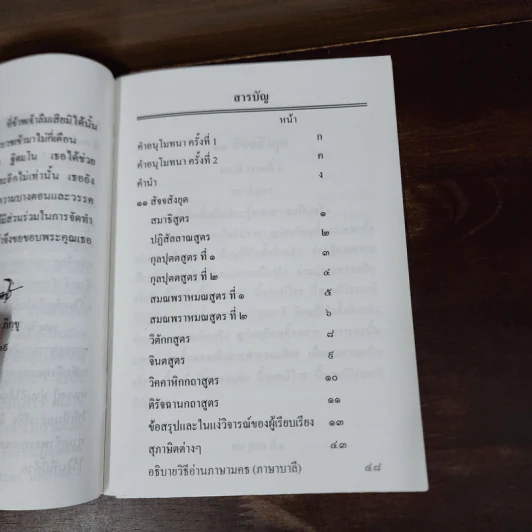 ที่ข้าพเจ้าลืมเสียมิได้นั้น
าพเจ้ามาไม่กี่เดือน
ฐิตมโน เธอได้ช่วย
ะอีกไม่เท่านั้น เธอยัง
ความบางตอนและวรรค
มีส่วนร่วมในการจัดทำ
จึงขอขอบพระคุณเธอ
ภิกขุ
สารบัญ
หน้า
คำอนุโมทนา ครั้งที่ 1 ก
คำอนุโมทนา ครั้งที่ 2 ค
คำนำ ง
๑๑ สัจจสังยุต
สมาธิสูตร ๑
ปฏิสัลลาณสูตร ๒
กุลปุตตสูตร ที่ ๑ ๓
กุลปุตตสูตร ที่ ๒ ๔
สมณพราหมณสูตร ที่ ๑ ๕
สมณพราหมณสูตร ที่ ๒ ๖
วิตักกสูตร ๘
จินตสูตร ๙
วิคคาหิกกถาสูตร ๑๐
ติรัจฉานกถาสูตร ๑๑
ข้อสรุปและในแง่วิจารณ์ของผู้เรียบเรียง ๑๓
สุภาษิตต่างๆ ๔๓
อธิบายวิธีอ่านภาษามคธ (ภาษาบาลี) ๔๘